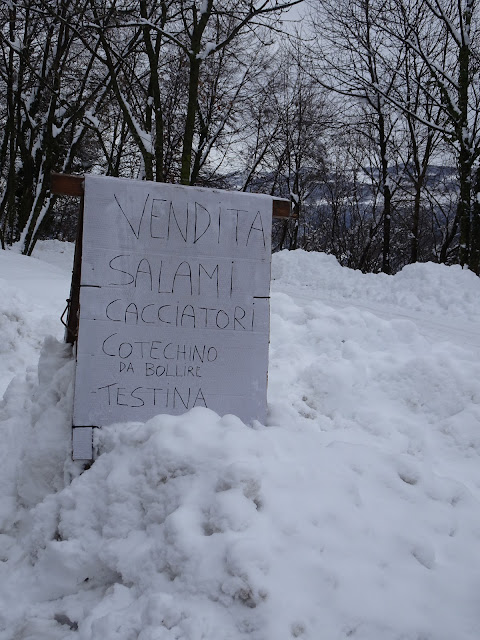 VENDITA
SALAMI
CACCIATORI
COTECHINO
DA BOLLIRE
-TESTINA